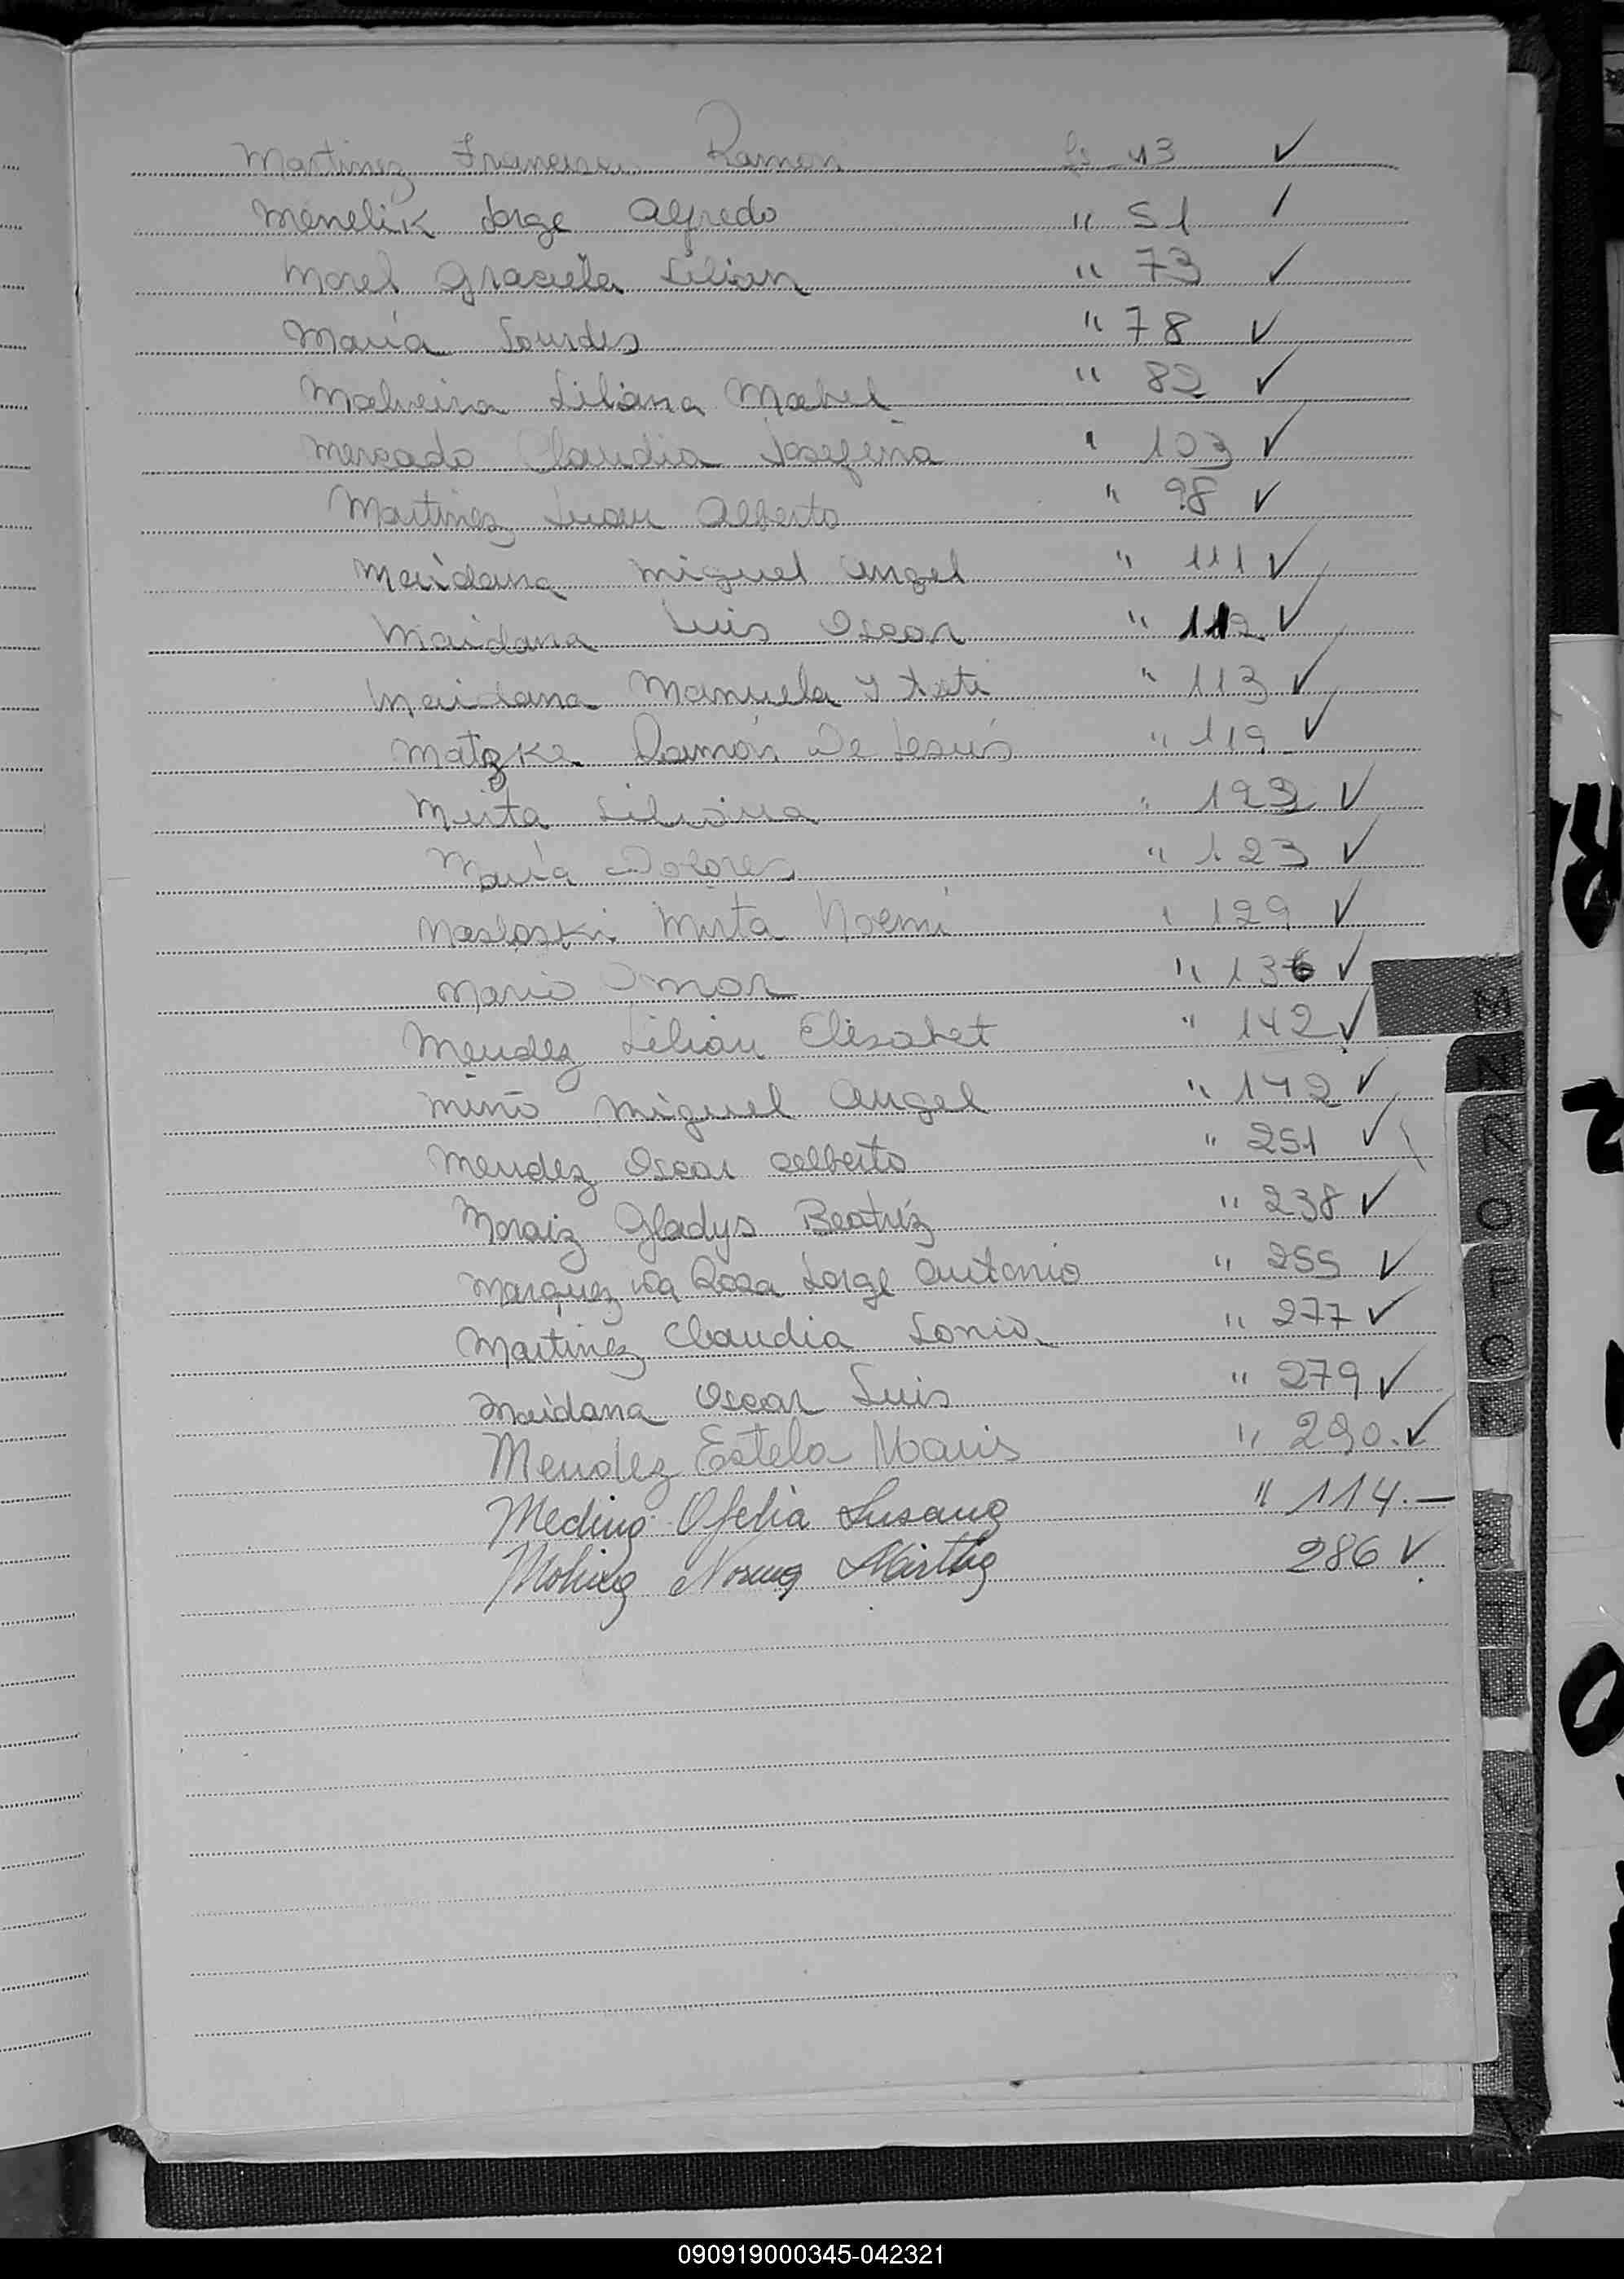 Martinez Francisco Ramon Fs 43 ✓
Menelik Jorge Alfredo " 51 ✓
Morel Graciela Lilian " 73 ✓
Maria Lourdes " 78 ✓
Malveira Liliana Mabel " 82 ✓
Mercado Claudia Josefina " 103 ✓
Martinez Juan Alberto " 98 ✓
Maidana Miguel Angel " 111 ✓
Maidana Luis Oscar " 112 ✓
Maidana Manuela Y " 113 ✓
Matzke Ramón De Jesús " 119 ✓
Mirta Silvina " ✓
María Dolores " 123 ✓
Masloski Mirta Noemi " 129 ✓
Mario Omar " 136 ✓
Mendez Lilian Elisabet " 142 ✓
Miño Miguel Angel " 142 ✓
Mendez Oscar Alberto " 251 ✓
Moraiz Gladys Beatríz " 238 ✓
Marquez Da Rosa Jorge Antonio " 255 ✓
Martinez Claudia Sonia " 277 ✓
Maidana Oscar Luis " 279 ✓
Mendez Estela Maris " 290. ✓
Medina Ofelia Susana " 114.—
Molina Norma Mirtha 286 ✓
M
N
Ñ
O
P
Q
R
S
T
U
V
090919000345-042321